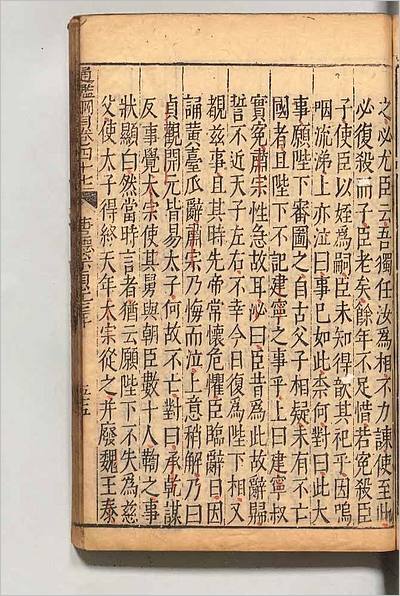 之必尤臣云吾獨任汝爲相不力諌使至此
必復殺而子臣老矣餘年不足惜若寃殺臣
子使臣以姪爲嗣臣未知得歆其祀乎因嗚
咽流涕上亦泣曰事已如此柰何對曰此大
事願陛下審圖之自古父子相疑未有不亡
國者且陛下不記建寧之事乎上曰建寧叔
實寃肅宗性急故耳泌曰臣昔爲此故辭歸
誓不近天子左右不幸今日復爲陛下相又
覩兹事且其時先帝常懷危懼臣臨辭日因
誦黄臺瓜辭肅宗乃悔而泣上意稍解乃曰
貞觀開元皆易太子何故不亡對曰承乾謀
反事覺太宗使其舅與朝臣數十人鞫之事
狀顯白然當時言者猶云願陛下不失爲慈
父使太子得終天年太宗從之并廢魏王泰
通鑑綱目卷四十七